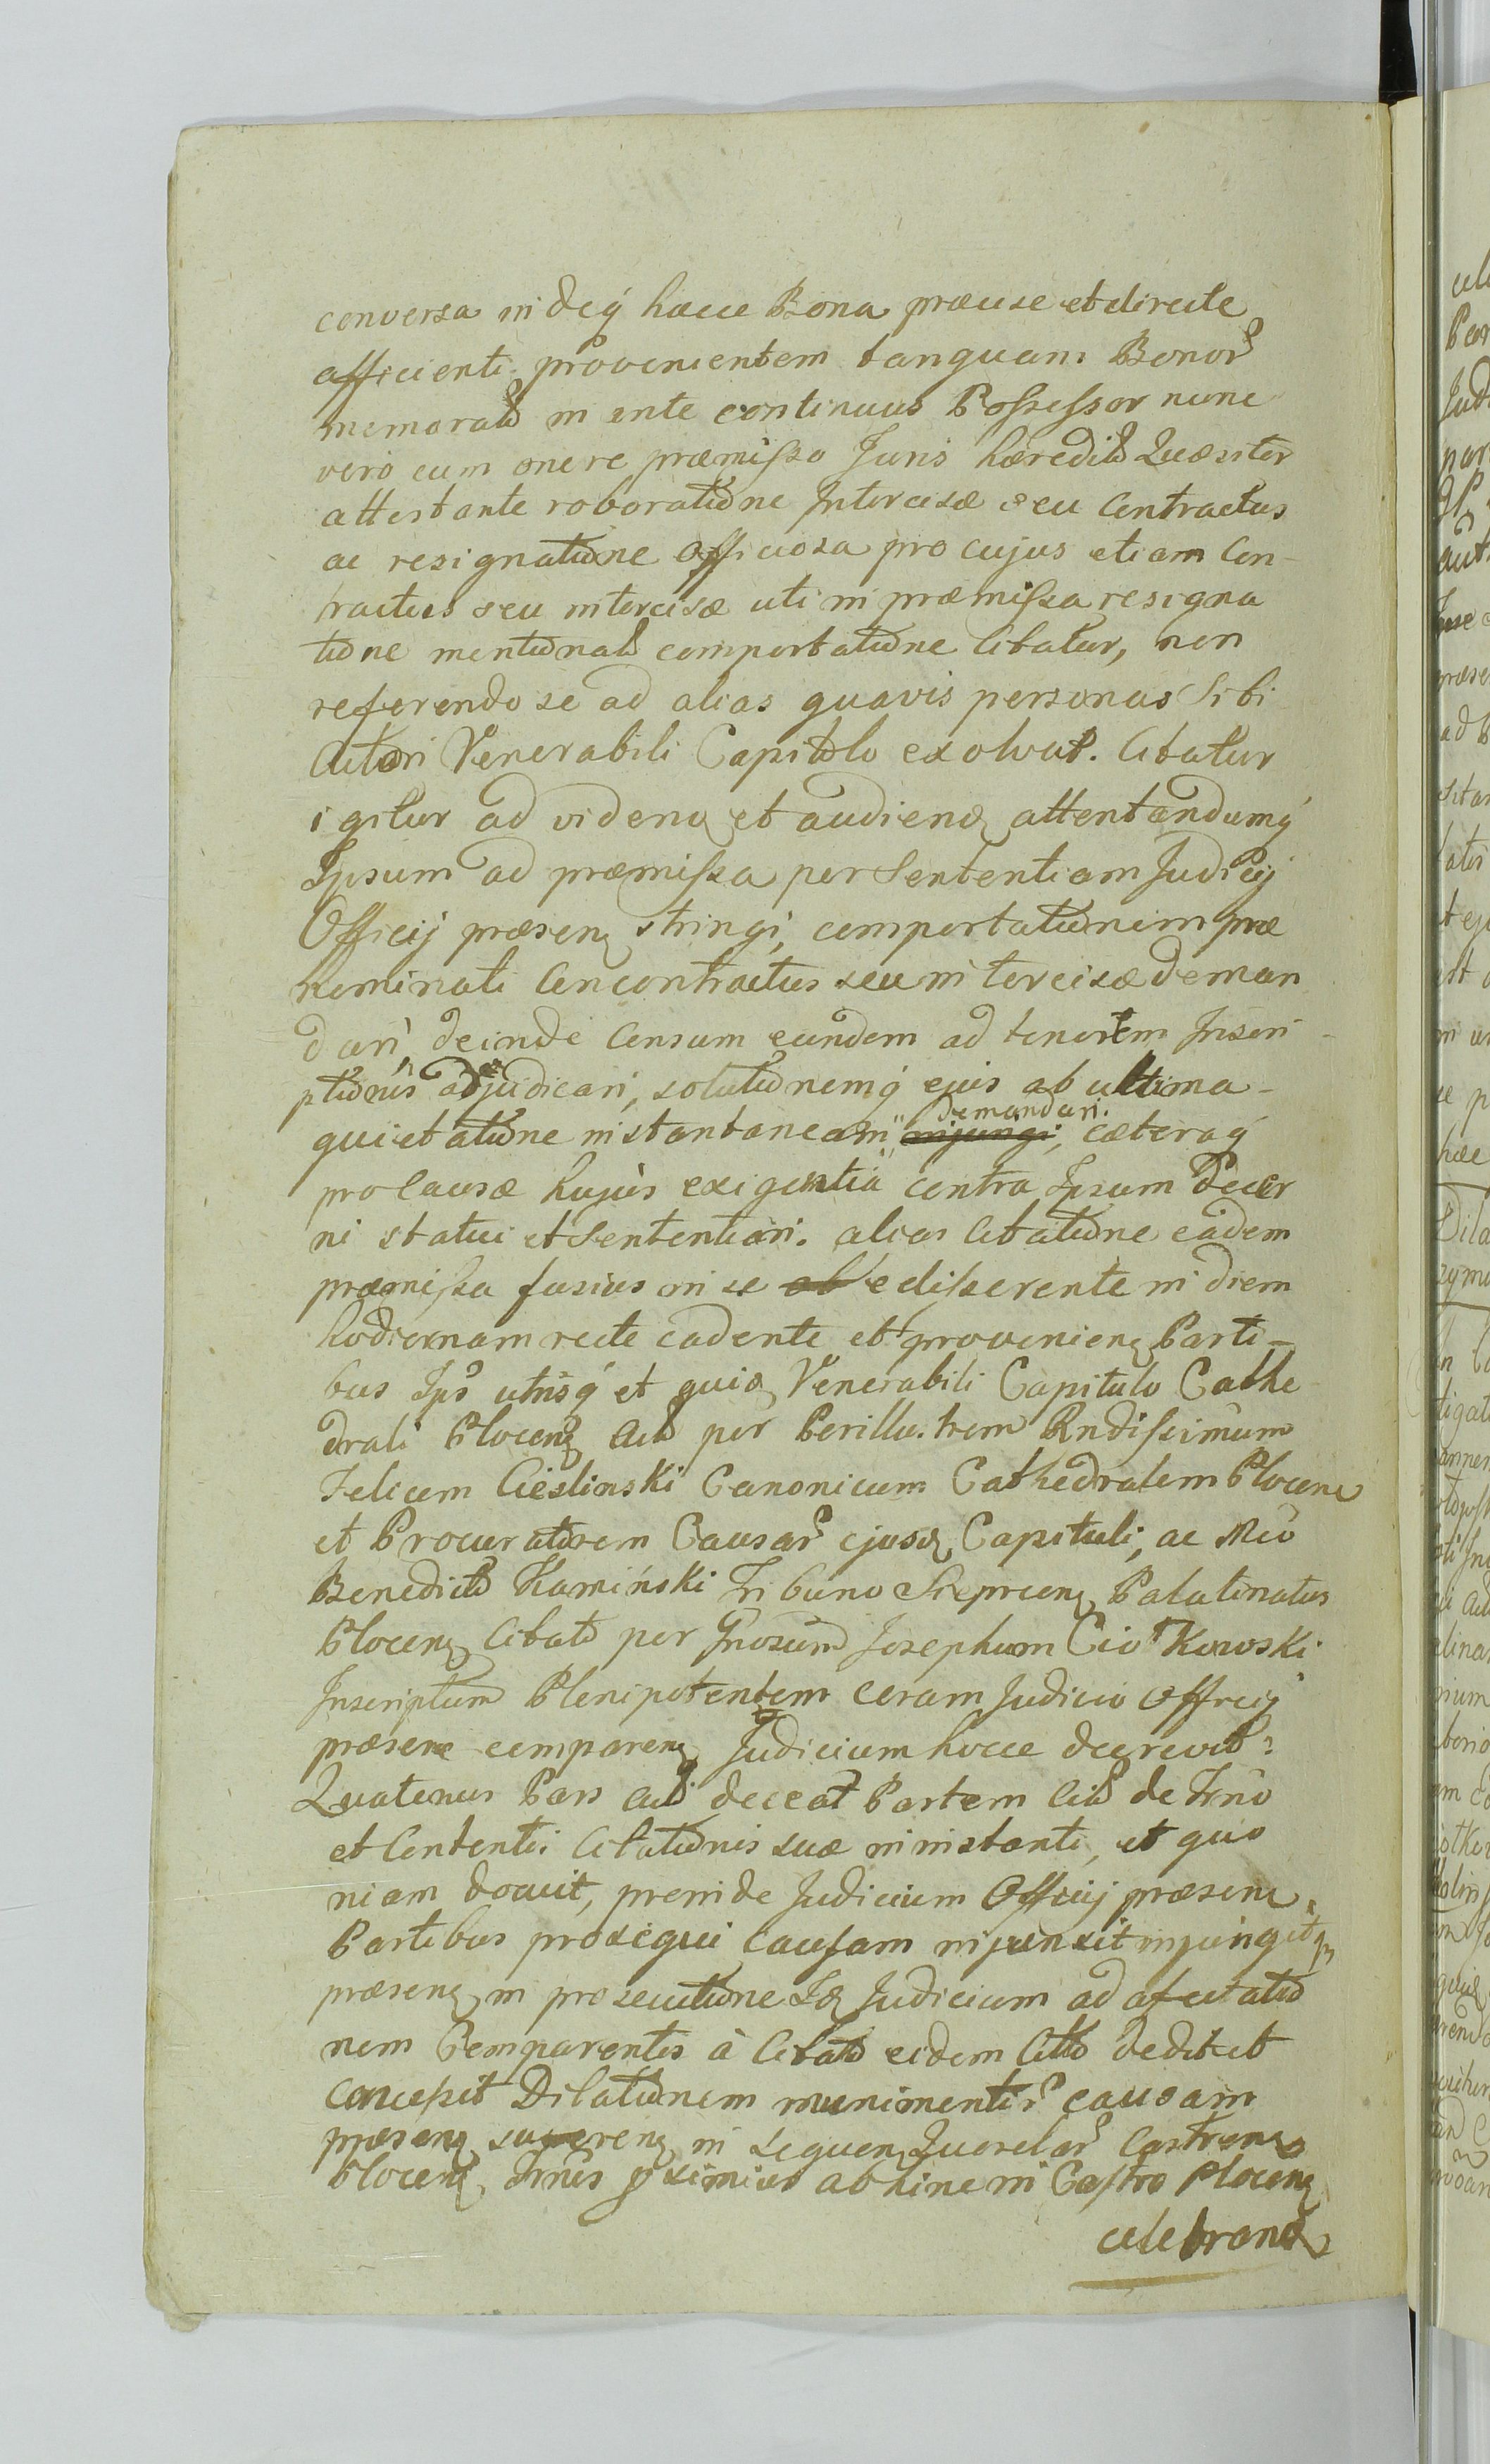 conversa indeq́ hæcce Bona præcise et directe
afficienti provenientem tanquam Bonor̃
memorat̃ in ante continuus Possessor nunc
vero cum onere præmisso Juris hæredit̃ Quæsitor
attestante roboratione Intercisæ seu Contractus
ac resignatione Officiosa pro cujus etiam Con-
tractus seu intercisæ uti in præmissa resigna
tione mentionat̃ comportatione Citatur, non
referendo se ad alias quavis personas Sibi
Actori Venerabili Capitulo exolvat. Citatur
igitur ad videnď et audienď attentandumq́
Ipsum ad præmissa per Sententiam Judicij
Officij præsenť stringi, comportationem præ
nominati Concontractus seu intercisæ deman
dari, deinde Censum eundem ad tenorem Inscri-
ptionis adjudicari, solutionemq́ ejus ab ultima-
quietatione instantaneam injungi, demandari. cæteraq́
pro Causæ hujus exigentia contra Ipsum Decer
ni statui et Sententiari. alias Citatione eadem
præmissa fusius in se ob edisserente in diem
hodiernam recte cadente et provenienť Parti-
bus Ips̃ utrisq́ et quiď Venerabili Capitulo Cathe
drali Plocenś Act̃ per Perillustrem Rndissimum
Felicem Cieslinski Canonicum Cathedralem Plocenś
et Procuratorem Causar̃ ejusď Capituli, ac Mco
Benedicto Kamiński Tribuno Sieprcenś Palatinatus
Plocenś Citato per Gnosum Josephum Ciotkowski
Inscriptum Plenipotentem coram Judicio Officij
præsenť comparenť Judicium hocce decrevit:
Quatenus Pars Act̃ doceat Partem Cit̃ de Trno
et Contenti Citationis suæ in instanti, et quo
niam docuit, proinde Judicium Officij præsenś
Partibus prosequi Causam injunxit injungitq́
præsenť in prosecutione Id́ Judicium ad afectatio
nem Comparentis à Citato eidem Citto dedit et
concessit Dilationem munimentor̃ causam
præsenť superenť in sequenť Querelar̃ Castrenś
Plocenś Trnis pximies abhinc in Castro Plocenś
celebranď